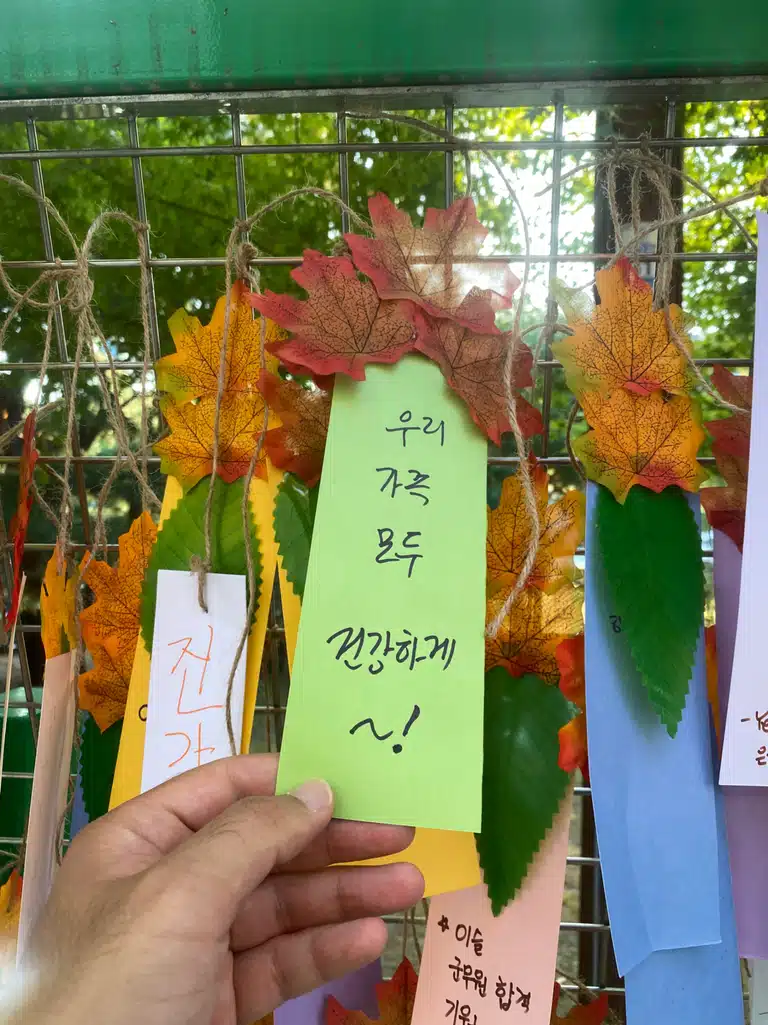 우리
가족
모두
건강하게
~!
진
가
* 이슬
군무원 합격
기원!